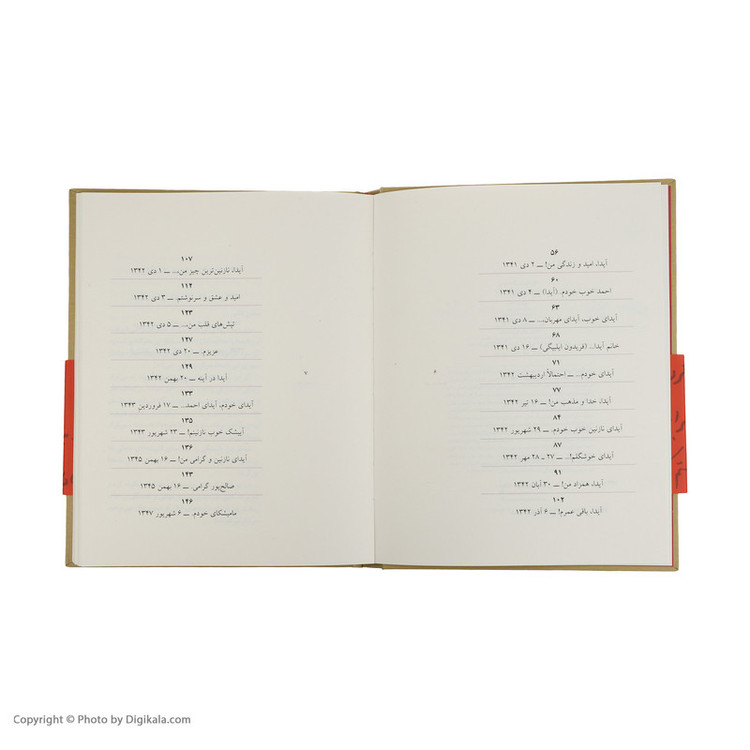 ۵۶
آیدا، امید و زندگی من! ــ ۲ دی ۱۳۴۱
۶۰
احمد خوب خودم. (آیدا) ــ ۴ دی ۱۳۴۱
۶۳
آیدای خوب، آیدای مهربان... ــ ۸ دی ۱۳۴۱
۶۸
خانم آیدا... (فریدون ایل‌بیگی) ــ ۱۶ دی ۱۳۴۱
۷۱
آیدای خودم... ــ احتمالاً اردیبهشت ۱۳۴۲
۷۷
آیدا، خدا و مذهب من! ــ ۱۶ تیر ۱۳۴۲
۸۴
آیدای نازنین خوب خودم. ــ ۲۹ شهریور ۱۳۴۲
۸۷
آیدای خوشگلم!... ــ ۲۷ ـ ۲۸ مهر ۱۳۴۲
۹۱
آیدا، همزاد من! ــ ۳۰ آبان ۱۳۴۲
۱۰۴
آیدا، باقی عمرم! ــ ۶ آذر ۱۳۴۲
۱۰۷
آیدا، نازنین‌ترین چیز من،... ــ ۱ دی ۱۳۴۲
۱۱۲
امید و عشق و سرنوشتم. ــ ۳ دی ۱۳۴۲
۱۲۳
تپش‌های قلب من،... ــ ۵ دی ۱۳۴۲
۱۲۷
عزیزم. ــ ۲۰ دی ۱۳۴۲
۱۲۹
آیدا در آینه ــ ۲۰ بهمن ۱۳۴۲
۱۳۳
آیدای خودم، آیدای احمد... ــ ۱۷ فروردین ۱۳۴۳
۱۳۵
آیشک خوب نازنینم! ــ ۲۳ شهریور ۱۳۴۳
۱۳۶
آیدای نازنین و گرامی من! ــ ۱۶ بهمن ۱۳۴۵
۱۴۳
صالح‌پور گرامی. ــ ۱۶ بهمن ۱۳۴۵
۱۴۶
مامیشکای خودم. ــ ۶ شهریور ۱۳۴۷
Copyright © Photo by Digikala.com